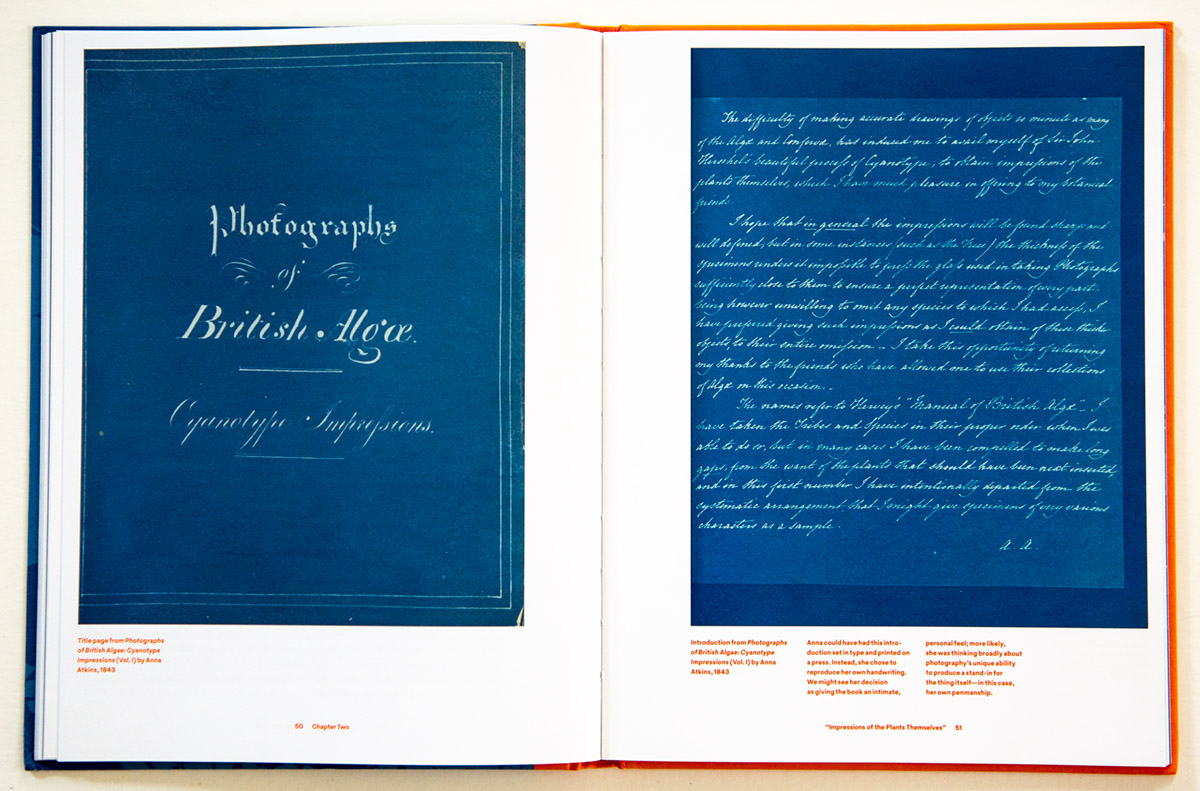 Photographs
of
British Algæ.
Cyanotype Impressions.
Title page from Photographs
of British Algae: Cyanotype
Impressions (Vol. I) by Anna
Atkins, 1843
50 Chapter Two
The difficulty of making accurate drawings of objects as minute as many
of the Algæ and Confervæ, has induced me to avail myself of Sir John
Herschel's beautiful process of Cyanotype, to obtain impressions of the
plants themselves, which I have much pleasure in offering to my botanical
friends.
I hope that in general the impressions will be found sharp and
well defined, but in some instances (such as the Fuci) the thickness of the
specimens renders it impossible to press the glass used in taking Photographs
sufficiently close to them to ensure a perfect representation of every part.
Being however unwilling to omit any species to which I had access, I
have preferred giving such impressions as I could obtain of these thicker
objects, to their entire omission – I take this opportunity of returning
my thanks to the friends who have allowed me to use their collections
of Algæ on this occasion. –
The names refer to Harvey's "Manual of British Algæ" – I
have taken the Tribes and Species in their proper order when I was
able to do so, but in many cases I have been compelled to make long
gaps, from the want of the plants that should have been next inserted,
and in this first number I have intentionally departed from the
systematic arrangement that I might give specimens of very various
characters as a sample.
A. A.
Introduction from Photographs
of British Algae: Cyanotype
Impressions (Vol. I) by Anna
Atkins, 1843
Anna could have had this intro-
duction set in type and printed on
a press. Instead, she chose to
reproduce her own handwriting.
We might see her decision
as giving the book an intimate,
personal feel; more likely,
she was thinking broadly about
photography's unique ability
to produce a stand-in for
the thing itself—in this case,
her own penmanship.
"Impressions of the Plants Themselves" 51